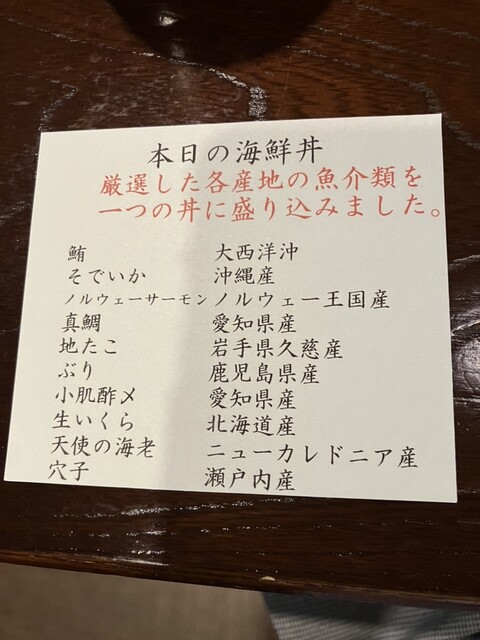 本日の海鮮丼
厳選した各産地の魚介類を
一つの丼に盛り込みました。
鮪 大西洋沖
そでいか 沖縄産
ノルウェーサーモン ノルウェー王国産
真鯛 愛知県産
地たこ 岩手県久慈産
ぶり 鹿児島県産
小肌酢〆 愛知県産
生いくら 北海道産
天使の海老 ニューカレドニア産
穴子 瀬戸内産